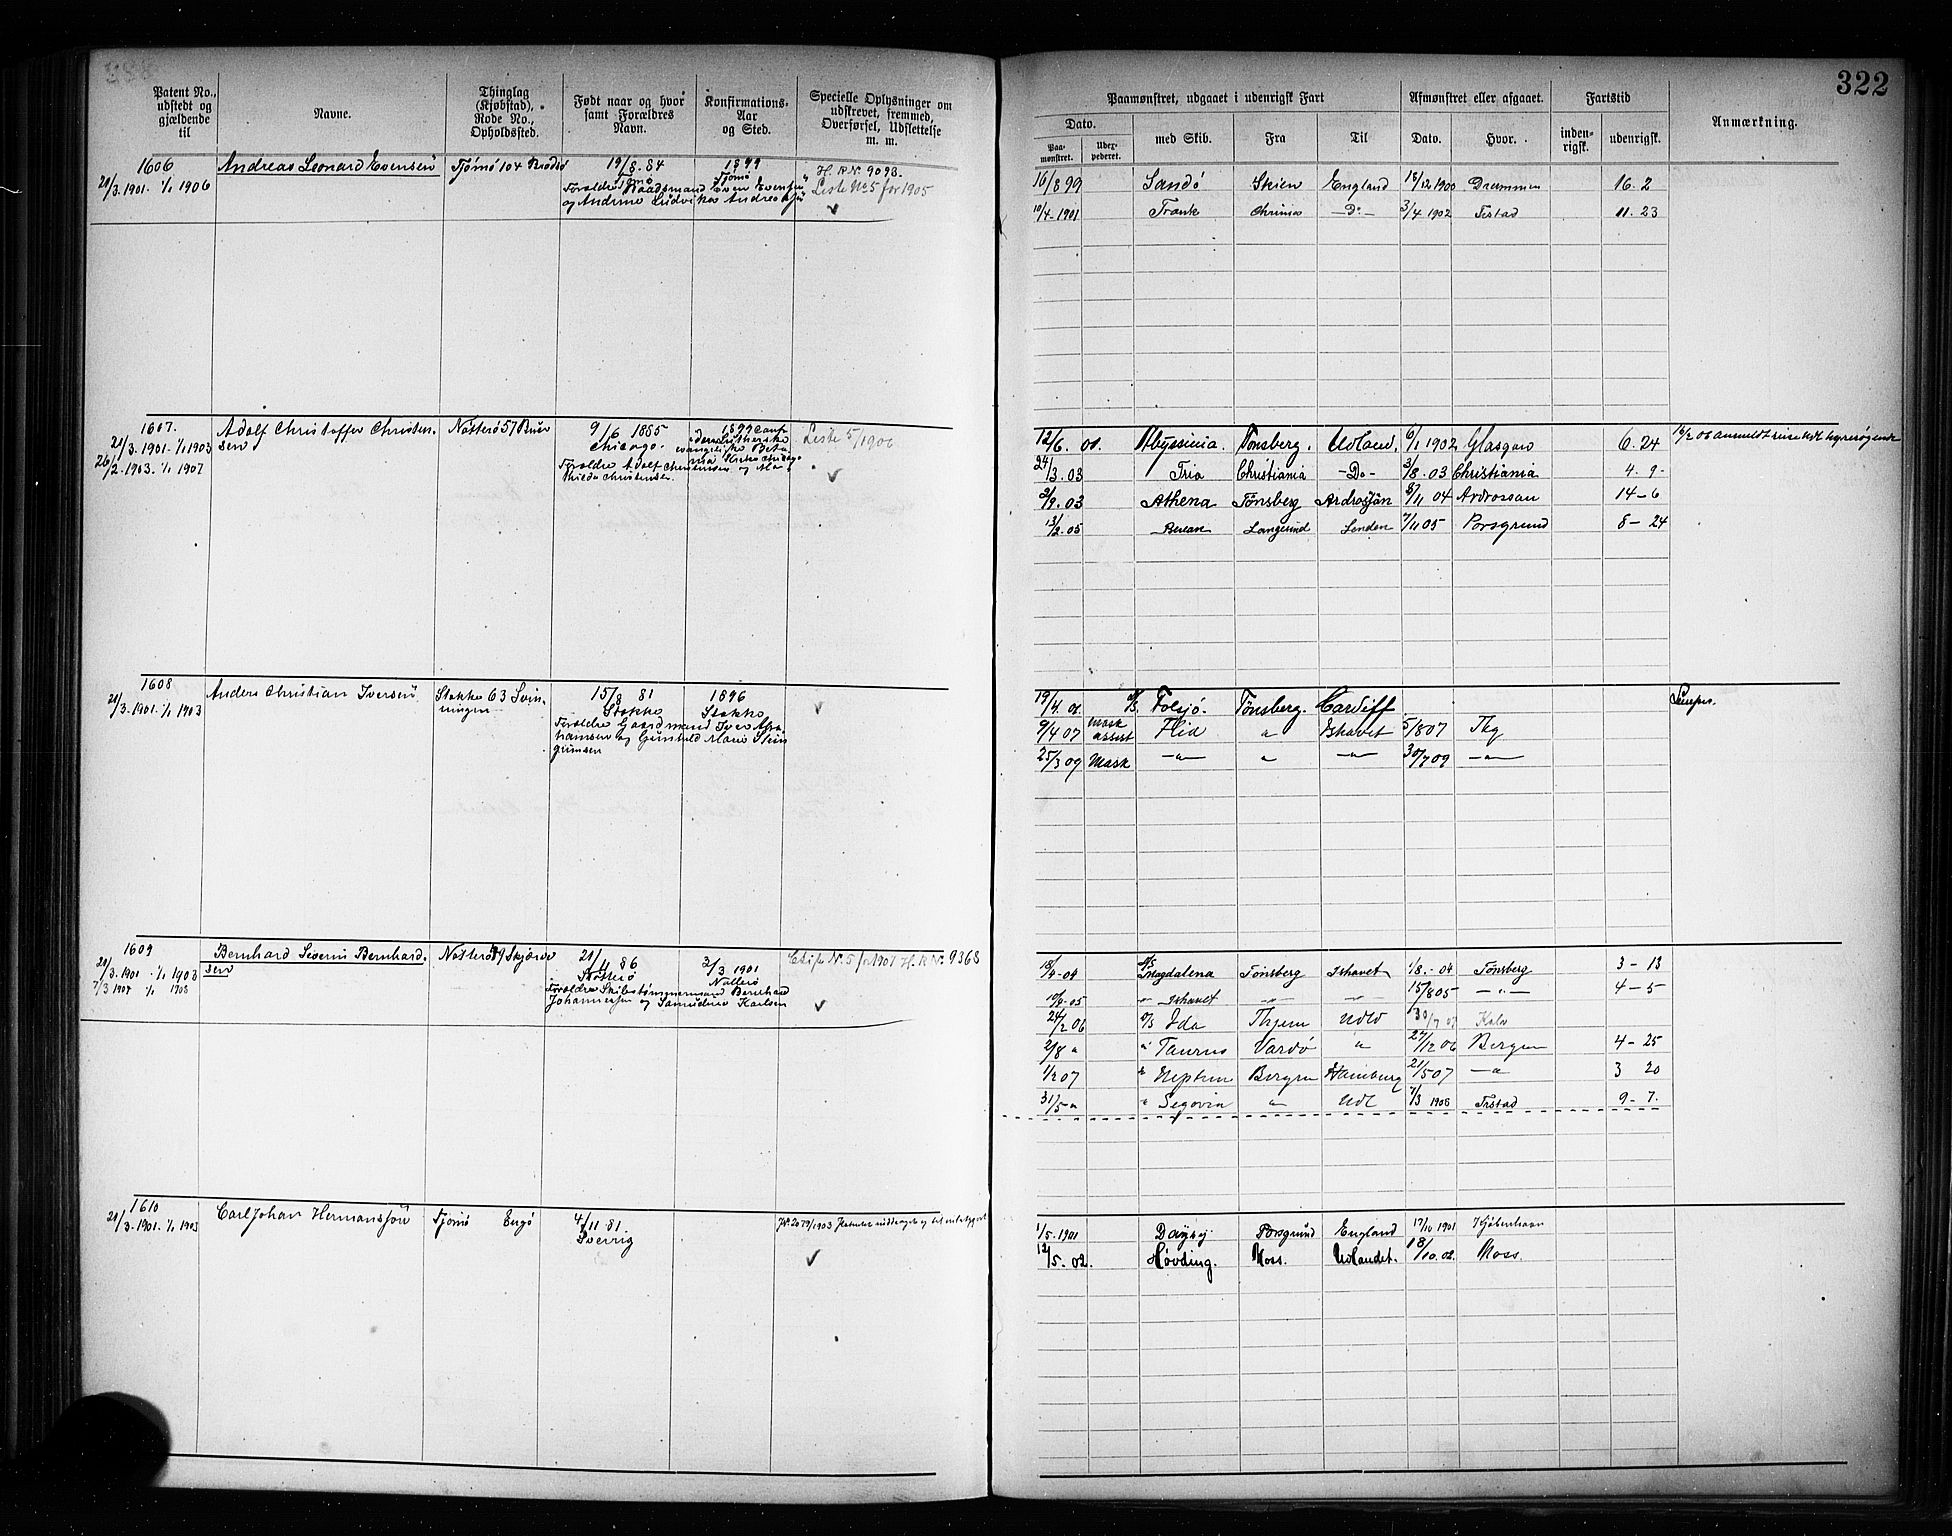 322
Patent No., udstedt og gjældende til
Navne.
Thinglag (Kjøbstad), Rode No., Opholdssted.
Født naar og hvor samt Forældres Navn.
Konfirmations-Aar og Sted.
Specielle Oplysninger om udskrevet, fremmed, Overførsel, Udslettelse m. m.
Paamønstret, udgaaet i udenrigsk Fart
Afmønstret eller afgaaet.
Fartstid
Anmærkning.
Dato.
Paamønstret.
med Skib.
Fra
Til
Dato.
Hvor.
inden-rigsk.
udenrigsk.
1606
21/3.1901. 1/1 1906
Andreas Leonard Evensen
Tjømø 104
19/8.84
Tjømø
1899
Tjømø
H. R. Nr. 9093.
Liste No 5 for 1905
Forældre Evensen
og Andrine Ludvikka
16/8 99 Sandö Skien England 18/12 1900 Drammen 16. 2
10/4-1901 Frank -Do- 3/4 1902 11. 23
1607.
21/3.1901. 1/1 1903
26/2.1903. 1/1 1907
Adolf Christoffer Christen-
sen
Nötterö 57
9/6 1885
Chicago.
Forældre Adolf Christensen og
Christensen.
1899
evangeliske
Liste 5/1906
12/6. 01. Abyssinia. Tønsberg. Udland. 6/1 1902 Glasgow 6. 24
24/3.03 Tria Christiania -Do- 3/8.03 Christiania 4. 9-
2/9.03 Athena Tønsberg Ardrossan 04 Ardrossan 14-6
13/2.05 Langesund London 7/11 05 Porsgrund 8-24
1608
21/3.1901. 1/1 1903
Anders Christian Iversen
Stokke 63
15/9 81
Stokke
1896
Stokke
Forældre Gaardmand Iver Abra-
hamsen og Gunhild Marie
19/4.01 Tønsberg. Cardiff
9/4 07 mask assist Flid " Ishavet 5/8 07 Tbg
25/3 09 Mask -"- " -"- 30/7 09 -"-
1609
21/3.1901 . 1/1 1903
7/3 1907 1/1 1908
Bernhard Severin Bernhard-
sen
Nötterö
21/11 86
Nötterö
3/3 1901
Nötterö
Nr. 5 for 1907 H. R. Nr. 9368
Forældre Skibstømmermand Bernhard
Johannessen og Karlsen
18/4-04 Magdalena Tønsberg Ishavet 1/8.-04 Tønsberg 3-13
Ishavet -"- -"- 15/8 05 -"- 4-5
24/2 06 Ida Thjem Udld 30/7 07
2/8 " " Taurus Vardö " 27/12 06 Bergen 4-25
1/2 07 " Neptun Bergen Hamburg 21/5 07 -"- 3 20
31/5 " " Segovia " Udl 7/3 1908 9-7.
1610
21/3.1901. 1/1 1903
Carl Johan Hermansson
Tjømø
4/11 81.
Sverrig
1/5.1901 Daysy Porsgrund England 17/10 1901 Kjøbenhavn
12/5-02. Høvding. Moss. Udlandet. 18/10.02. Moss.